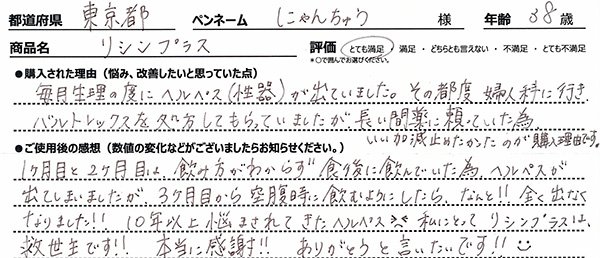 都道府県 東京都 ペンネーム にゃんちゅう 様 年齢 38 歳
商品名 リシンプラス 評価 とても満足 ・ 満足 ・ どちらとも言えない ・ 不満足 ・ とても不満足
*○で囲んでお選びください。
●購入された理由（悩み、改善したいと思っていた点）
毎月生理の度にヘルペス(性器)が出ていました。その都度 婦人科に行き
バルトレックスを処方してもらっていましたが、長い間薬に頼っていた為
いい加減止めたかったのが購入理由です。
●ご使用後の感想（数値の変化などがございましたらお知らせください。）
1ヶ月目と2ヶ月目は、飲み方がわからず 食後に飲んでいた為、ヘルペスが
出てしまいましたが 3ヶ月目から 空腹時に飲むようにしたら、なんと!! 全く出なく
なりました!! 10年以上悩まされてきたヘルペス 私にとって リシンプラスは、
救世主です!! 本当に感謝!! ありがとうと言いたいです!!